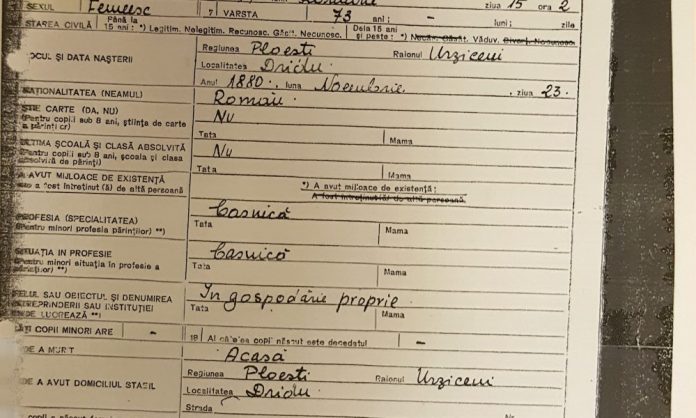 SEXUL Femeesc 7 VARSTA 73 ani; — luni; zile
ziua 15 ora 2
STAREA CIVILĂ Până la 15 ani: *) Legitim. Nelegitim. Recunosc. Găsit. Necunosc. Dela 15 ani și peste: *) Necăs. Căsăt. Văduv. Divorț. Necunosc.
LOCUL ȘI DATA NAȘTERII
Regiunea Ploești Raionul Urziceni
Localitatea Dridu
Anul 1880. luna Noembrie. ziua 23.
NAȚIONALITATEA (NEAMUL) Român
ȘTIE CARTE (DA, NU) Nu
(Pentru copii sub 8 ani, știința de carte a părinților)
Tata Mama
ULTIMA ȘCOALĂ ȘI CLASĂ ABSOLVITĂ Nu
(Pentru copii sub 8 ani, școala și clasa absolvită de părinți)
Tata Mama
A AVUT MIJLOACE DE EXISTENȚĂ *) A avut mijloace de existență;
sau a fost întreținut (ă) de altă persoană A fost întreținut(ă) de altă persoană
PROFESIA (SPECIALITATEA) Casnică
(Pentru minori profesia părinților) **)
Tata Mama
SITUAȚIA IN PROFESIE Casnică
(Pentru minori situația în profesie a părinților) **)
Tata Mama
FELUL SAU OBIECTUL ȘI DENUMIREA ÎNTREPRINDERII SAU INSTITUȚIEI UNDE LUCREAZĂ **) In gospodărie proprie
Tata Mama
CÂȚI COPII MINORI ARE — 18 Al câtelea copil născut este decedatul —
UNDE A MURIT Acasă
UNDE A AVUT DOMICILIUL STABIL
Regiunea Ploești Raionul Urziceni
Localitatea Dridu
Strada No.